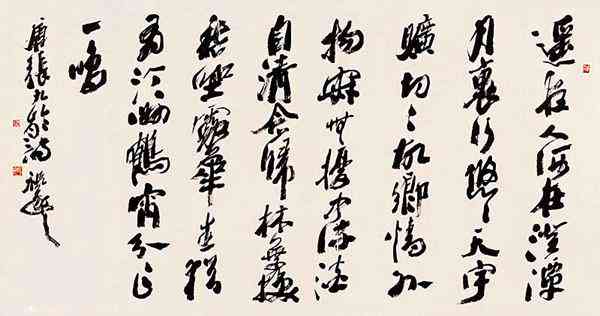 遙夜人何在澄潭
月裏行悠々天宇
曠切々故鄉情外
物寂無擾中流淡
自清念歸林葉換
愁坐露華生猶
有汀洲鶴宵分乍
一鳴
唐張九齡詩